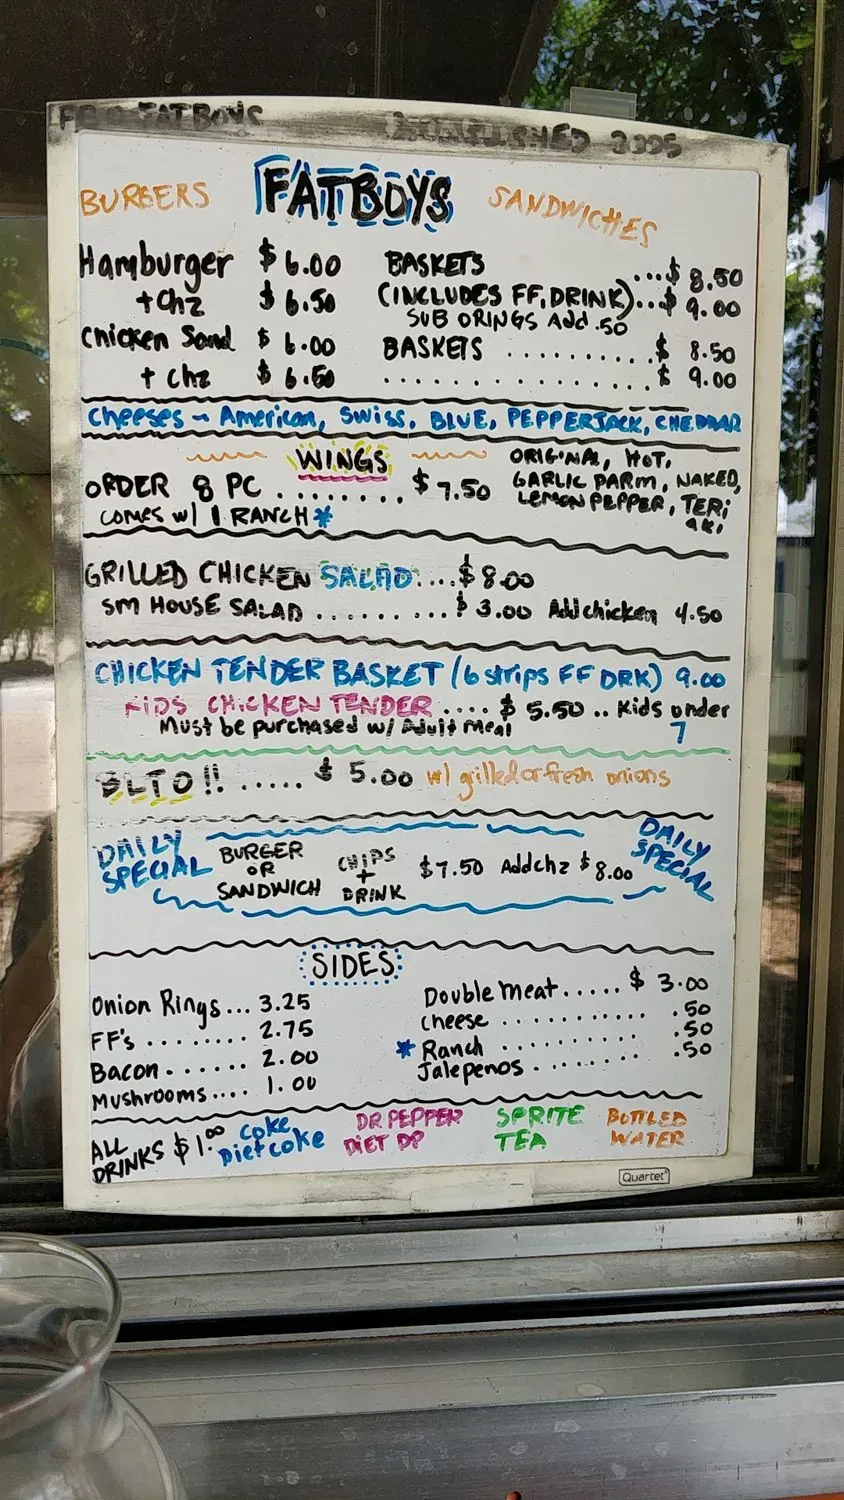 FATBOYS
ESTABLISHED 2005
BURGERS FATBOYS SANDWICHES
Hamburger $6.00 BASKETS ...$ 8.50
+chz $6.50 (INCLUDES FF, DRINK)...$ 9.00
SUB ORINGS Add .50
Chicken Sand $6.00 BASKETS .........$ 8.50
+ chz $6.50 ................$ 9.00
Cheeses ~ American, Swiss, BLUE, PEPPERJACK, CHEDDAR
WINGS
ORDER 8 PC ........ $7.50
comes w/ 1 RANCH*
ORIGINAL, HOT,
GARLIC PARM, NAKED,
LEMON PEPPER, TERI
AKI
GRILLED CHICKEN SALAD ...$8.00
SM HOUSE SALAD .........$ 3.00 Add chicken 4.50
CHICKEN TENDER BASKET (6 strips FF DRK) 9.00
KIDS CHICKEN TENDER .... $ 5.50 .. Kids under
7
Must be purchased w/ Adult meal
BLTO!! ..... $ 5.00 w/ grilled or fresh onions
DAILY SPECIAL
BURGER OR SANDWICH
CHIPS + DRINK
$7.50 Add chz $8.00
DAILY SPECIAL
SIDES
Onion Rings... 3.25
FF's ......... 2.75
Bacon....... 2.00
Mushrooms.... 1.00
Double meat ..... $ 3.00
cheese ........... .50
* Ranch .......... .50
Jalepenos ........ .50
ALL DRINKS $1.00
Coke
Diet coke
DR PEPPER
DIET DP
SPRITE
TEA
BOTTLED
WATER
Quartet